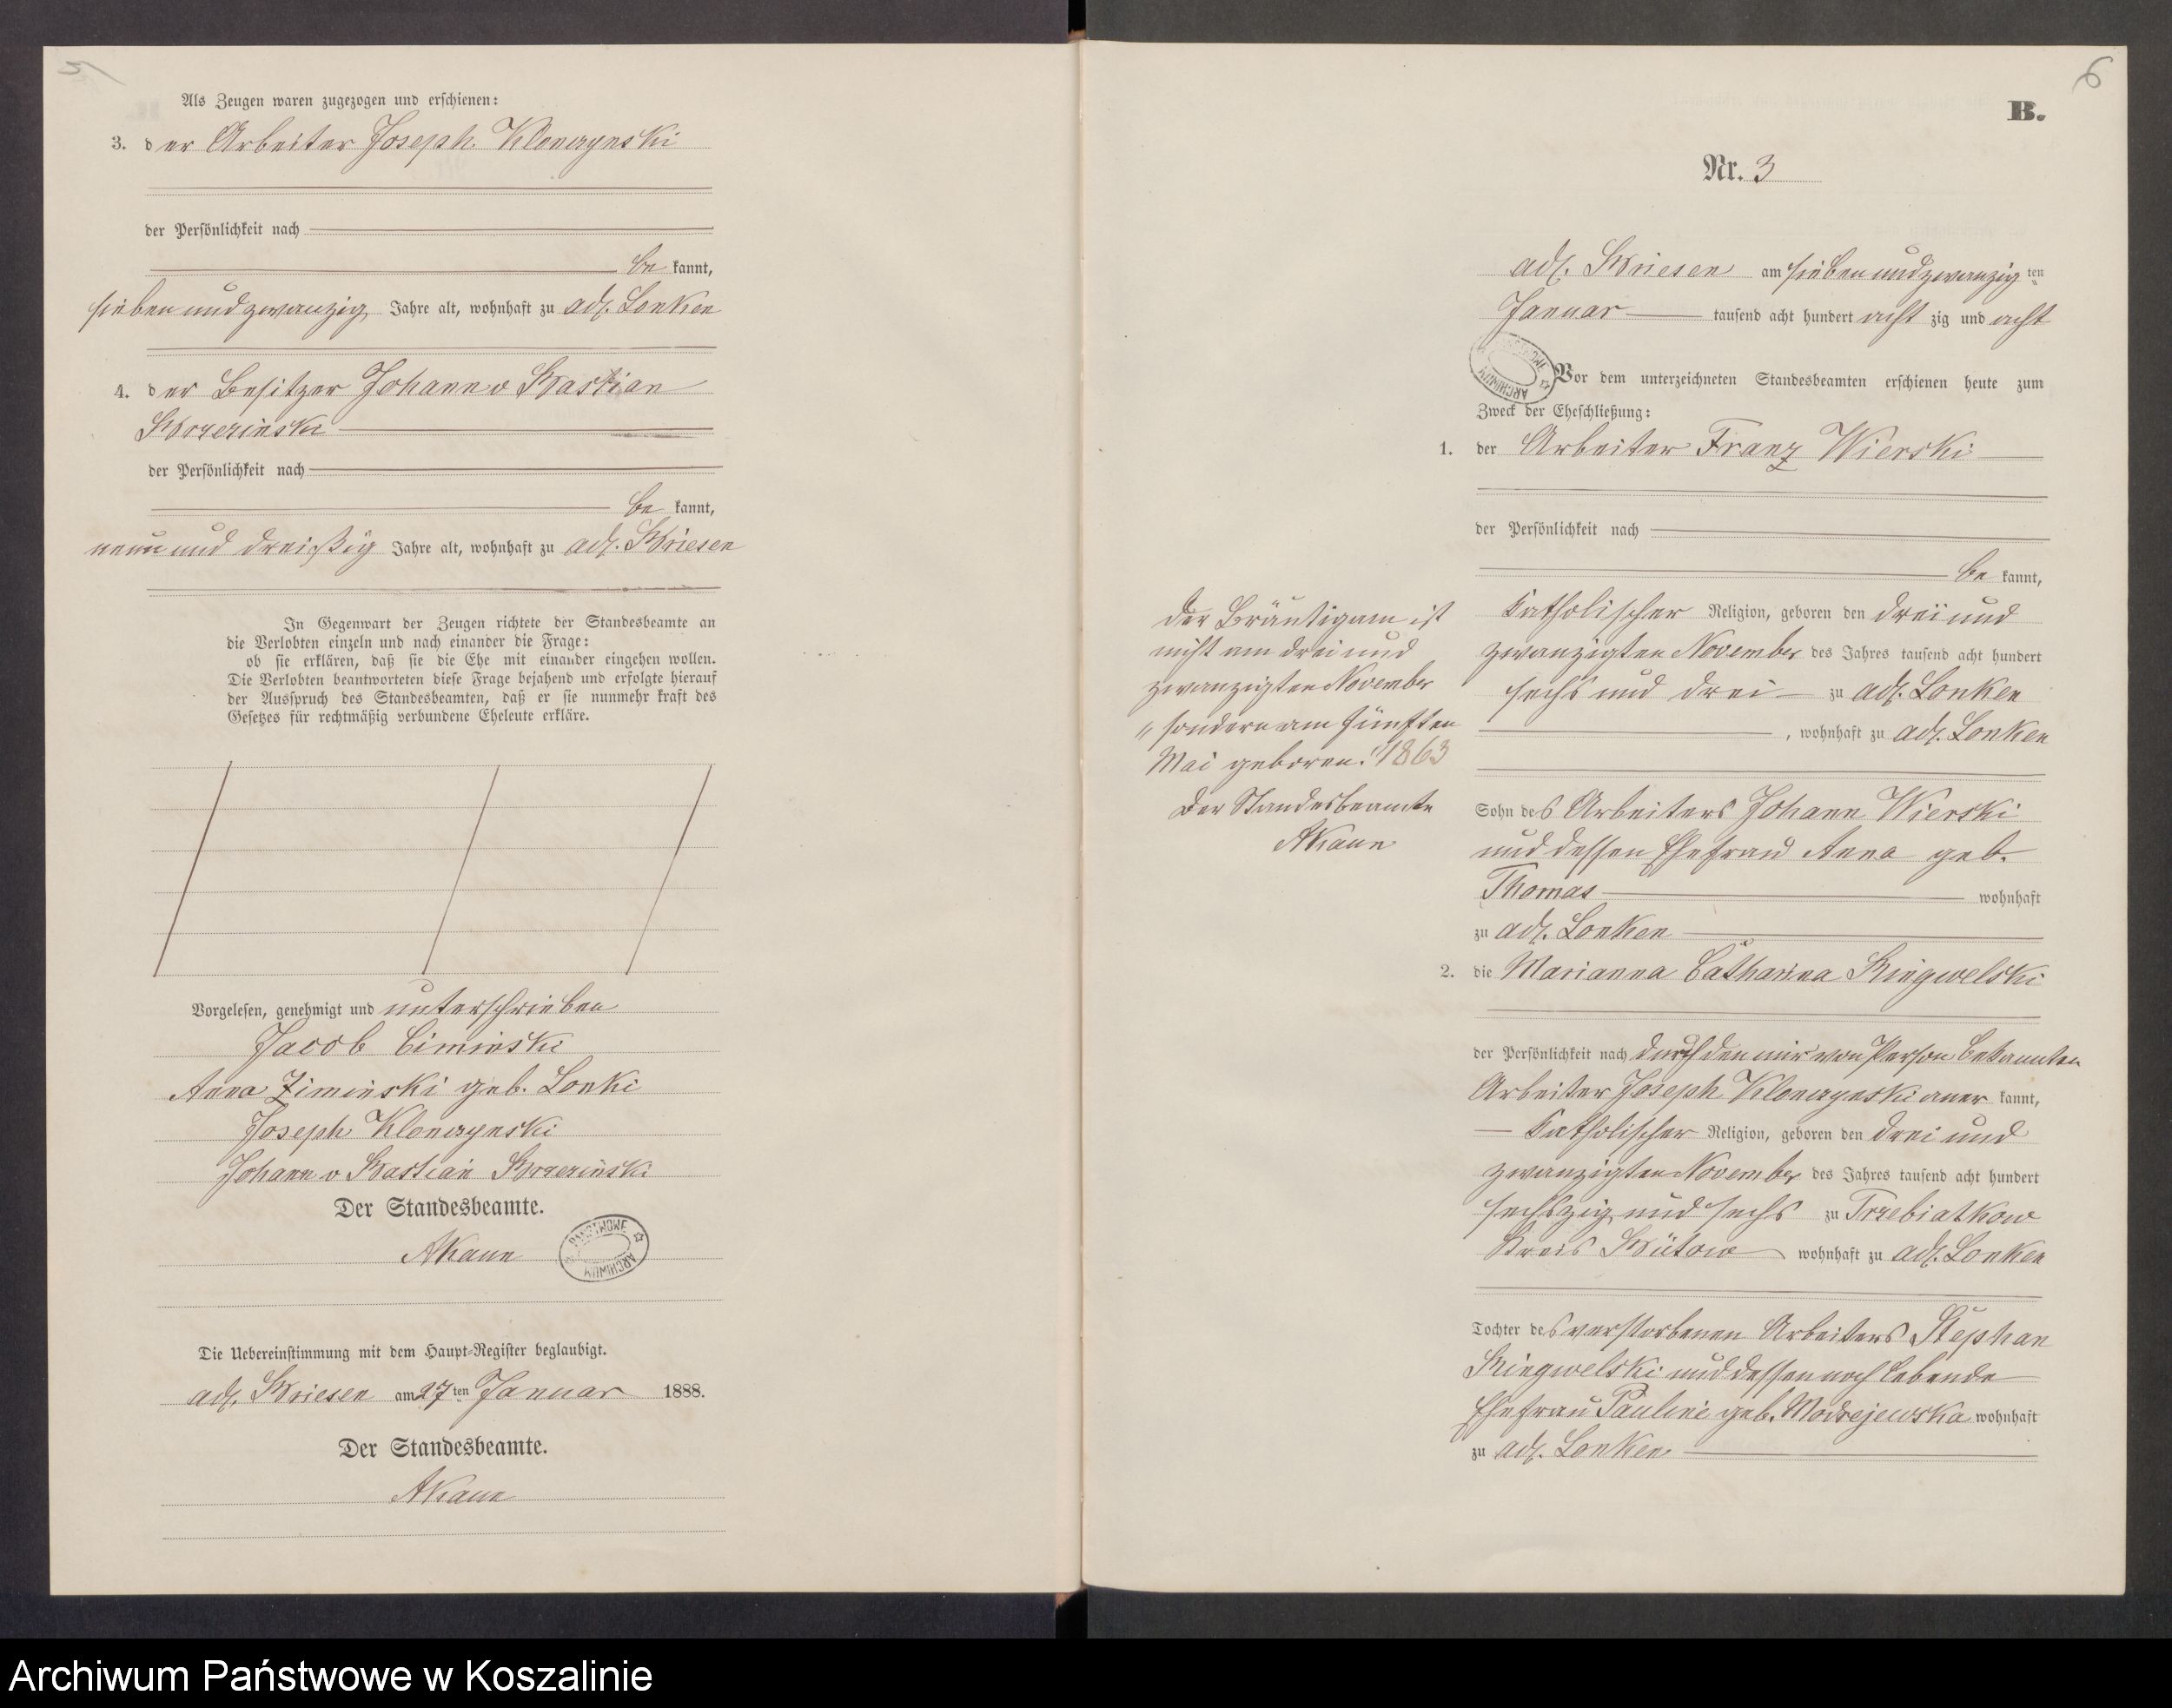 5
Als Zeugen waren zugezogen und erschienen:
3. der Arbeiter Joseph Klonczynski
der Persönlichkeit nach
be kannt,
sieben und zwanzig Jahre alt, wohnhaft zu adl. Lonken
4. der Besitzer Johann v Bastian
der Persönlichkeit nach
be kannt,
neun und dreißig Jahre alt, wohnhaft zu adl. Briesen
In Gegenwart der Zeugen richtete der Standesbeamte an
die Verlobten einzeln und nach einander die Frage:
ob sie erklären, daß sie die Ehe mit einander eingehen wollen.
Die Verlobten beantworteten diese Frage bejahend und erfolgte hierauf
der Ausspruch des Standesbeamten, daß er sie nunmehr kraft des
Gesetzes für rechtmäßig verbundene Eheleute erkläre.
Vorgelesen, genehmigt und unterschrieben
Jacob Ciminski
Anna Ziminski geb. Lonki
Joseph Klonczynski
Johann v Bastian
Der Standesbeamte.
AKaun
ARCHIWUM PAŃSTWOWE
Die Uebereinstimmung mit dem Haupt-Register beglaubigt.
adl. Briesen am 27ten Januar 1888.
Der Standesbeamte.
AKaun
6
B.
Nr. 3
adl. Briesen am sieben und zwanzig ten
Januar tausend acht hundert acht zig und acht
ARCHIWUM PAŃSTWOWE
Vor dem unterzeichneten Standesbeamten erschienen heute zum
Zweck der Eheschließung:
1. der Arbeiter Franz Wierski
der Persönlichkeit nach
be kannt,
Katholischer Religion, geboren den drei und
zwanzigten November des Jahres tausend acht hundert
sechs und drei zu adl. Lonken
, wohnhaft zu adl. Lonken
Sohn des Arbeiters Johann Wierski
und dessen Ehefrau Anna geb.
Thomas wohnhaft
zu adl. Lonken
2. die Marianna Catharina Ringwelski
der Persönlichkeit nach durch den mir von Person bekannten
Arbeiter Joseph Klonczynski aner kannt,
Katholischer Religion, geboren den drei und
zwanzigten November des Jahres tausend acht hundert
sechszig und sechs zu Trzebiatkow
Kreis Bütow wohnhaft zu adl. Lonken
Tochter des verstorbenen Arbeiters Stephan
Ringwelski und dessen noch lebende
Ehefrau Pauline geb. Modrejewska wohnhaft
zu adl. Lonken
Der Bräutigam ist
nicht am drei und
zwanzigten November
" sondern am fünften
Mai geboren." 1863
Der Standesbeamte
AKaun
Archiwum Państwowe w Koszalinie